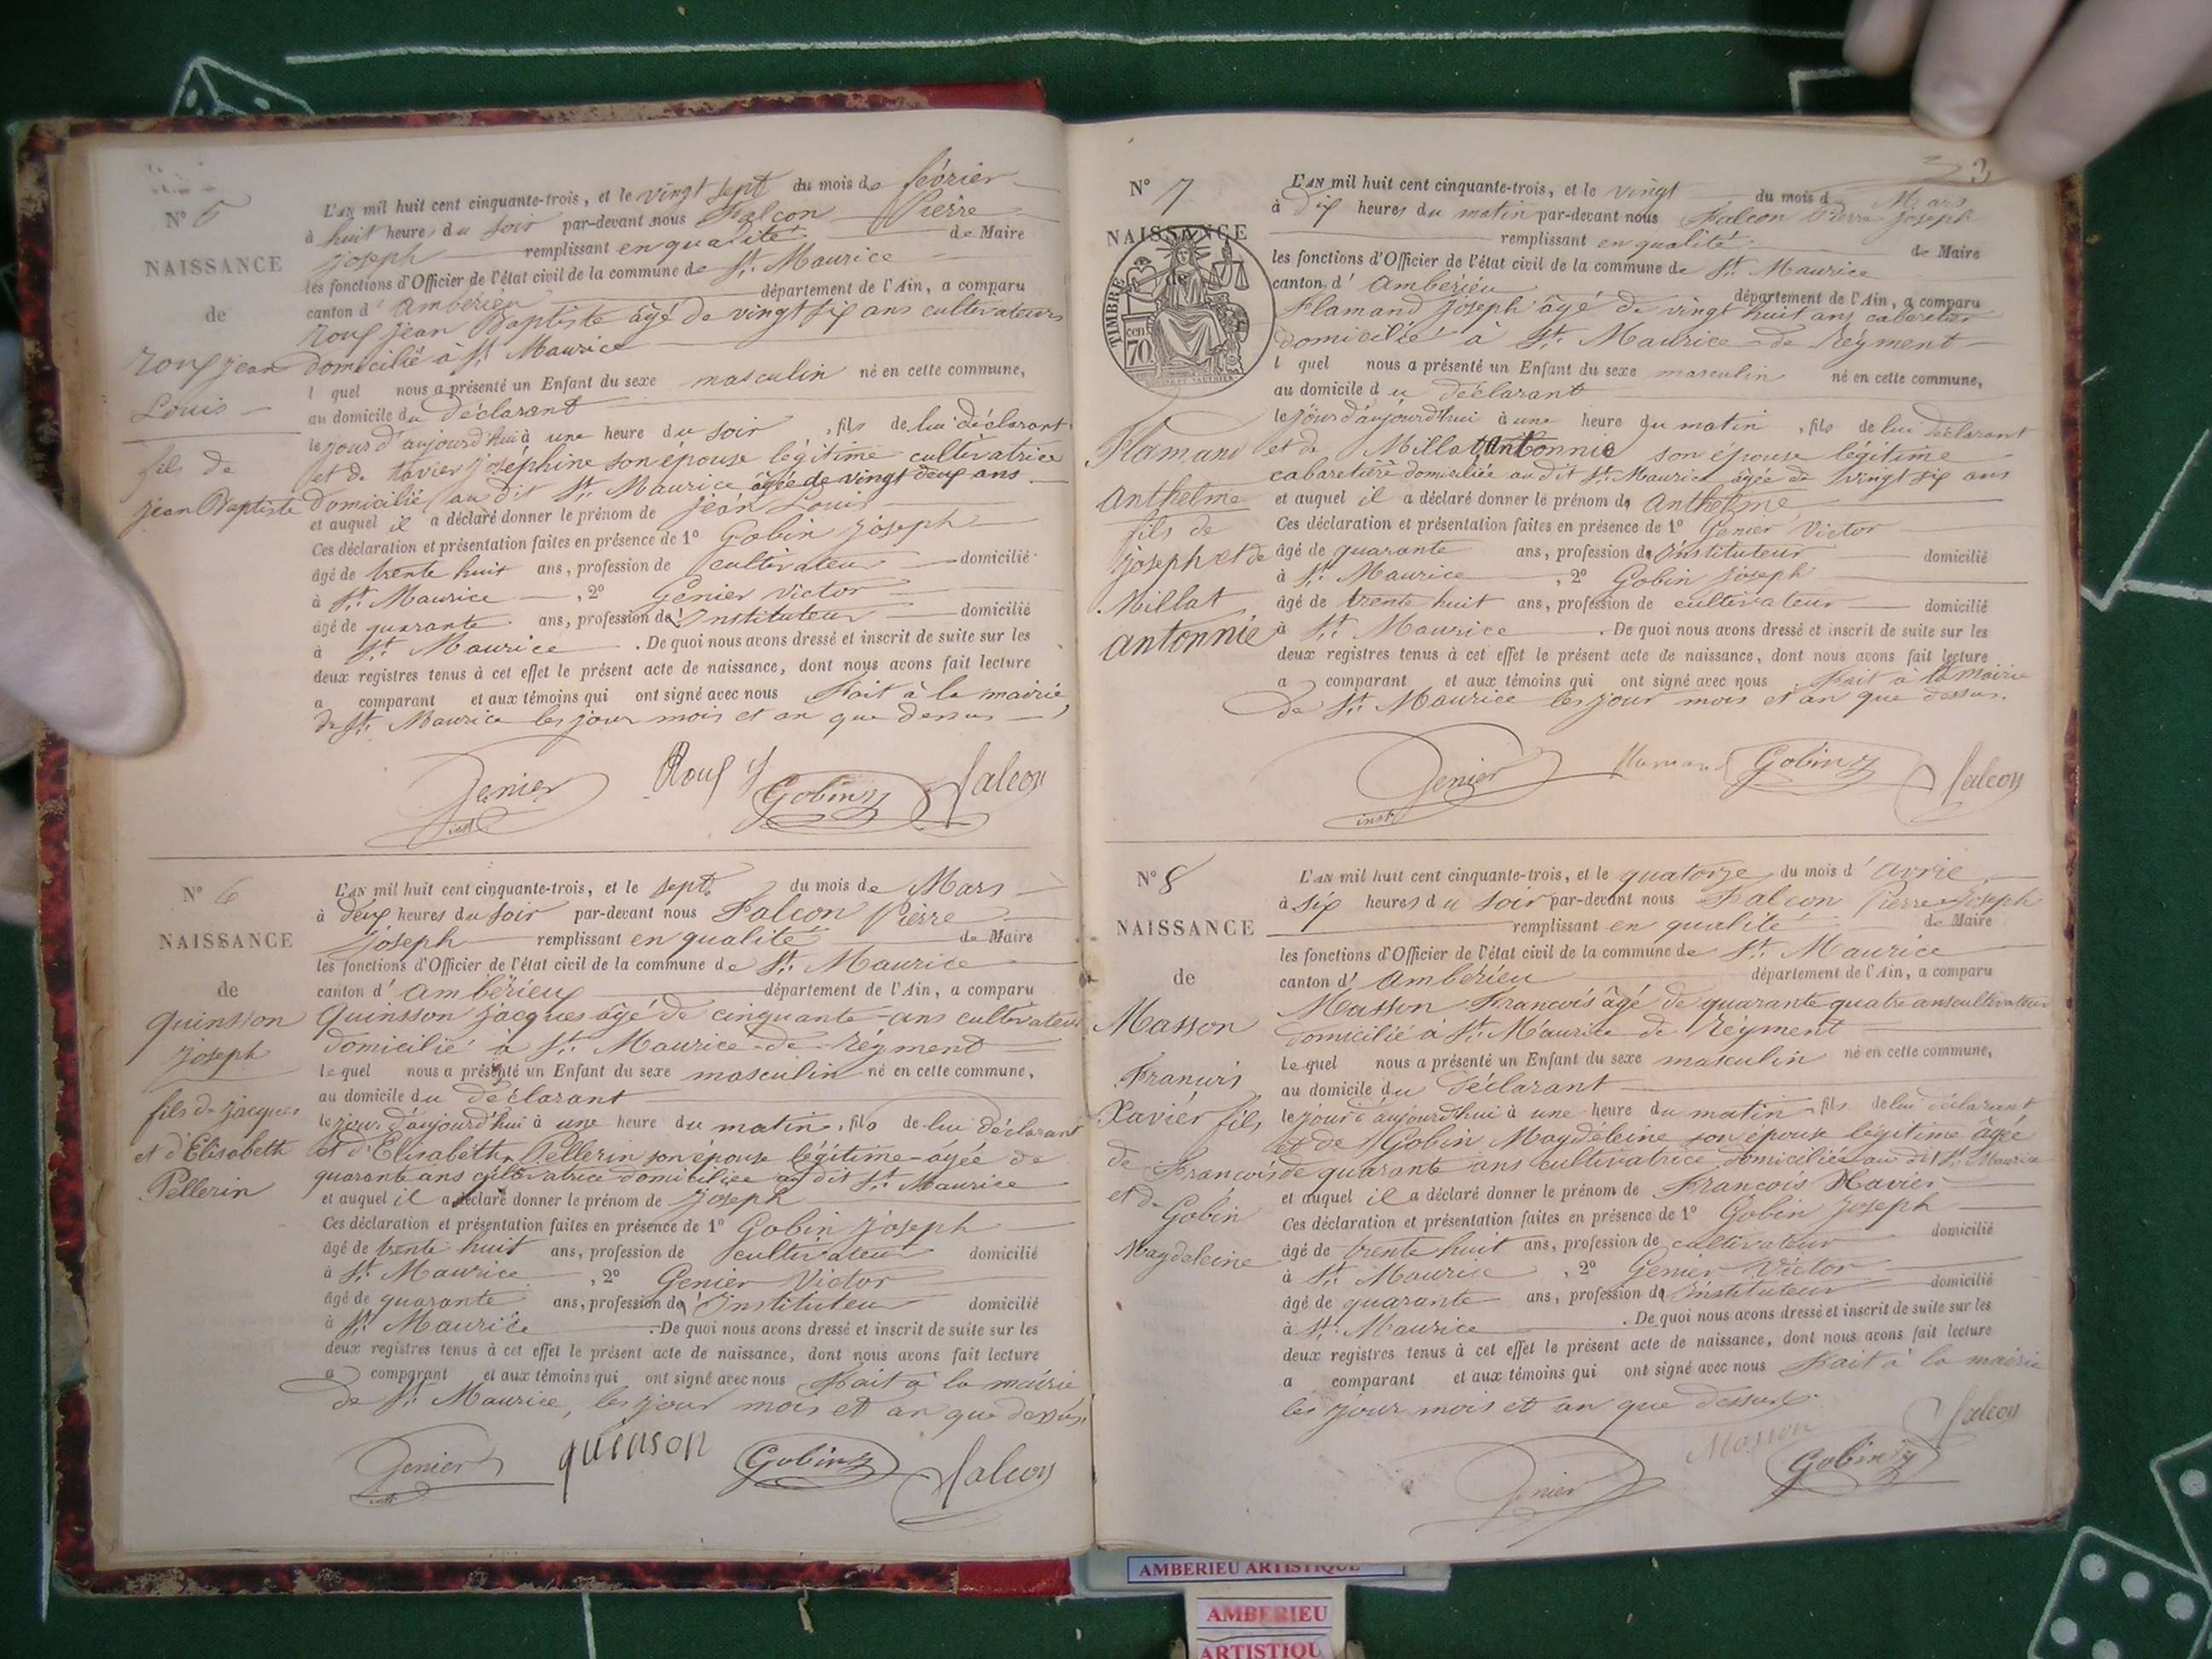 N° 5
NAISSANCE
de
Roux Jean
Louis
fils de
Jean Baptiste
L'AN mil huit cent cinquante-trois, et le vingt sept du mois de février
à huit heures du soir par-devant nous Falcon Pierre
Joseph remplissant en qualité de Maire
les fonctions d'Officier de l'état civil de la commune de St. Maurice
canton d'Ambérieu département de l'Ain, a comparu
Roux Jean Baptiste âgé de vingt six ans cultivateur
domicilié à St. Maurice
l quel nous a présenté un Enfant du sexe masculin né en cette commune,
au domicile du déclarant
le jour d'aujourd'hui à une heure du soir, fils de lui déclarant
et de Joséphine son épouse légitime cultivatrice
domicilié au dit St. Maurice âgée de vingt deux ans
et auquel il a déclaré donner le prénom de Jean Louis
Ces déclaration et présentation faites en présence de 1° Gobin Joseph
âgé de trente huit ans, profession de cultivateur domicilié
à St. Maurice, 2° Genier Victor
âgé de quarante ans, profession de Instituteur domicilié
à St. Maurice. De quoi nous avons dressé et inscrit de suite sur les
deux registres tenus à cet effet le présent acte de naissance, dont nous avons fait lecture
a comparant et aux témoins qui ont signé avec nous Fait à la mairie
de St. Maurice les jour mois et an que dessus
Genier Roux Gobin Falcon
inst
N° 6
NAISSANCE
de
Quinsson
Joseph
fils de Jacques
et d'Elisabeth
Pellerin
L'AN mil huit cent cinquante-trois, et le sept du mois de Mars
à deux heures du soir par-devant nous Falcon Pierre
Joseph remplissant en qualité de Maire
les fonctions d'Officier de l'état civil de la commune de St. Maurice
canton d'Ambérieux département de l'Ain, a comparu
Quinsson Jacques âgé de cinquante-ans cultivateur
domicilié à St. Maurice-de-Réyment
le quel nous a présenté un Enfant du sexe masculin né en cette commune,
au domicile du déclarant
le jour d'aujourd'hui à une heure du matin, fils de lui déclarant
et d'Elisabeth Pellerin son épouse légitime âgée de
quarante ans cultivatrice domiciliée au dit St. Maurice
et auquel il a déclaré donner le prénom de Joseph
Ces déclaration et présentation faites en présence de 1° Gobin Joseph
âgé de trente huit ans, profession de cultivateur domicilié
à St. Maurice, 2° Genier Victor
âgé de quarante ans, profession de Instituteur domicilié
à St. Maurice. De quoi nous avons dressé et inscrit de suite sur les
deux registres tenus à cet effet le présent acte de naissance, dont nous avons fait lecture
a comparant et aux témoins qui ont signé avec nous Fait à la mairie
de St. Maurice, les jour mois et an que dessus
Genier quinson Gobin Falcon
inst
3
N° 7
NAISSANCE
de
TIMBRE
cen
70
Flamand
Anthelme
fils de
Joseph et de
Millat
antonnie
L'AN mil huit cent cinquante-trois, et le vingt du mois d Mars
à dix heures du matin par-devant nous Falcon Pierre Joseph
remplissant en qualité de Maire
les fonctions d'Officier de l'état civil de la commune de St. Maurice
canton d'Ambérieu département de l'Ain, a comparu
Flamand Joseph âgé de vingt huit ans cabaretier
domicilié à St. Maurice-de Réyment
l quel nous a présenté un Enfant du sexe masculin né en cette commune,
au domicile du déclarant
le jour d'aujourd'hui à une heure du matin, fils de lui déclarant
et de Millat Antonnie son épouse légitime
cabaretière domiciliée au dit St. Maurice âgée de vingt six ans
et auquel il a déclaré donner le prénom de Anthelme
Ces déclaration et présentation faites en présence de 1° Genier Victor
âgé de quarante ans, profession de Instituteur domicilié
à St. Maurice, 2° Gobin Joseph
âgé de trente huit ans, profession de cultivateur domicilié
à St. Maurice. De quoi nous avons dressé et inscrit de suite sur les
deux registres tenus à cet effet le présent acte de naissance, dont nous avons fait lecture
a comparant et aux témoins qui ont signé avec nous Fait à la mairie
de St. Maurice les jour mois et an que dessus.
Genier Flamand Gobin Falcon
inst
N° 8
NAISSANCE
de
Masson
François
Xavier fils
de François
et de Gobin
Magdeleine
L'AN mil huit cent cinquante-trois, et le quatorze du mois d'avril
à six heures du soir par-devant nous Falcon Pierre Joseph
remplissant en qualité de Maire
les fonctions d'Officier de l'état civil de la commune de St. Maurice
canton d'Ambérieu département de l'Ain, a comparu
Masson François âgé de quarante quatre ans cultivateur
domicilié à St. Maurice de Réyment
le quel nous a présenté un Enfant du sexe masculin né en cette commune,
au domicile du déclarant
le jour d'aujourd'hui à une heure du matin fils de lui déclarant
et de Gobin Magdeleine son épouse légitime âgée
de quarante ans cultivatrice domiciliée au dit St. Maurice
et auquel il a déclaré donner le prénom de François Xavier
Ces déclaration et présentation faites en présence de 1° Gobin Joseph
âgé de trente huit ans, profession de cultivateur domicilié
à St. Maurice, 2° Genier Victor
âgé de quarante ans, profession de Instituteur domicilié
à St. Maurice. De quoi nous avons dressé et inscrit de suite sur les
deux registres tenus à cet effet le présent acte de naissance, dont nous avons fait lecture
a comparant et aux témoins qui ont signé avec nous Fait à la mairie
les jour mois et an que dessus
Genier Masson Gobin Falcon
AMBERIEU ARTISTIQUE
AMBERIEU
ARTISTIQU